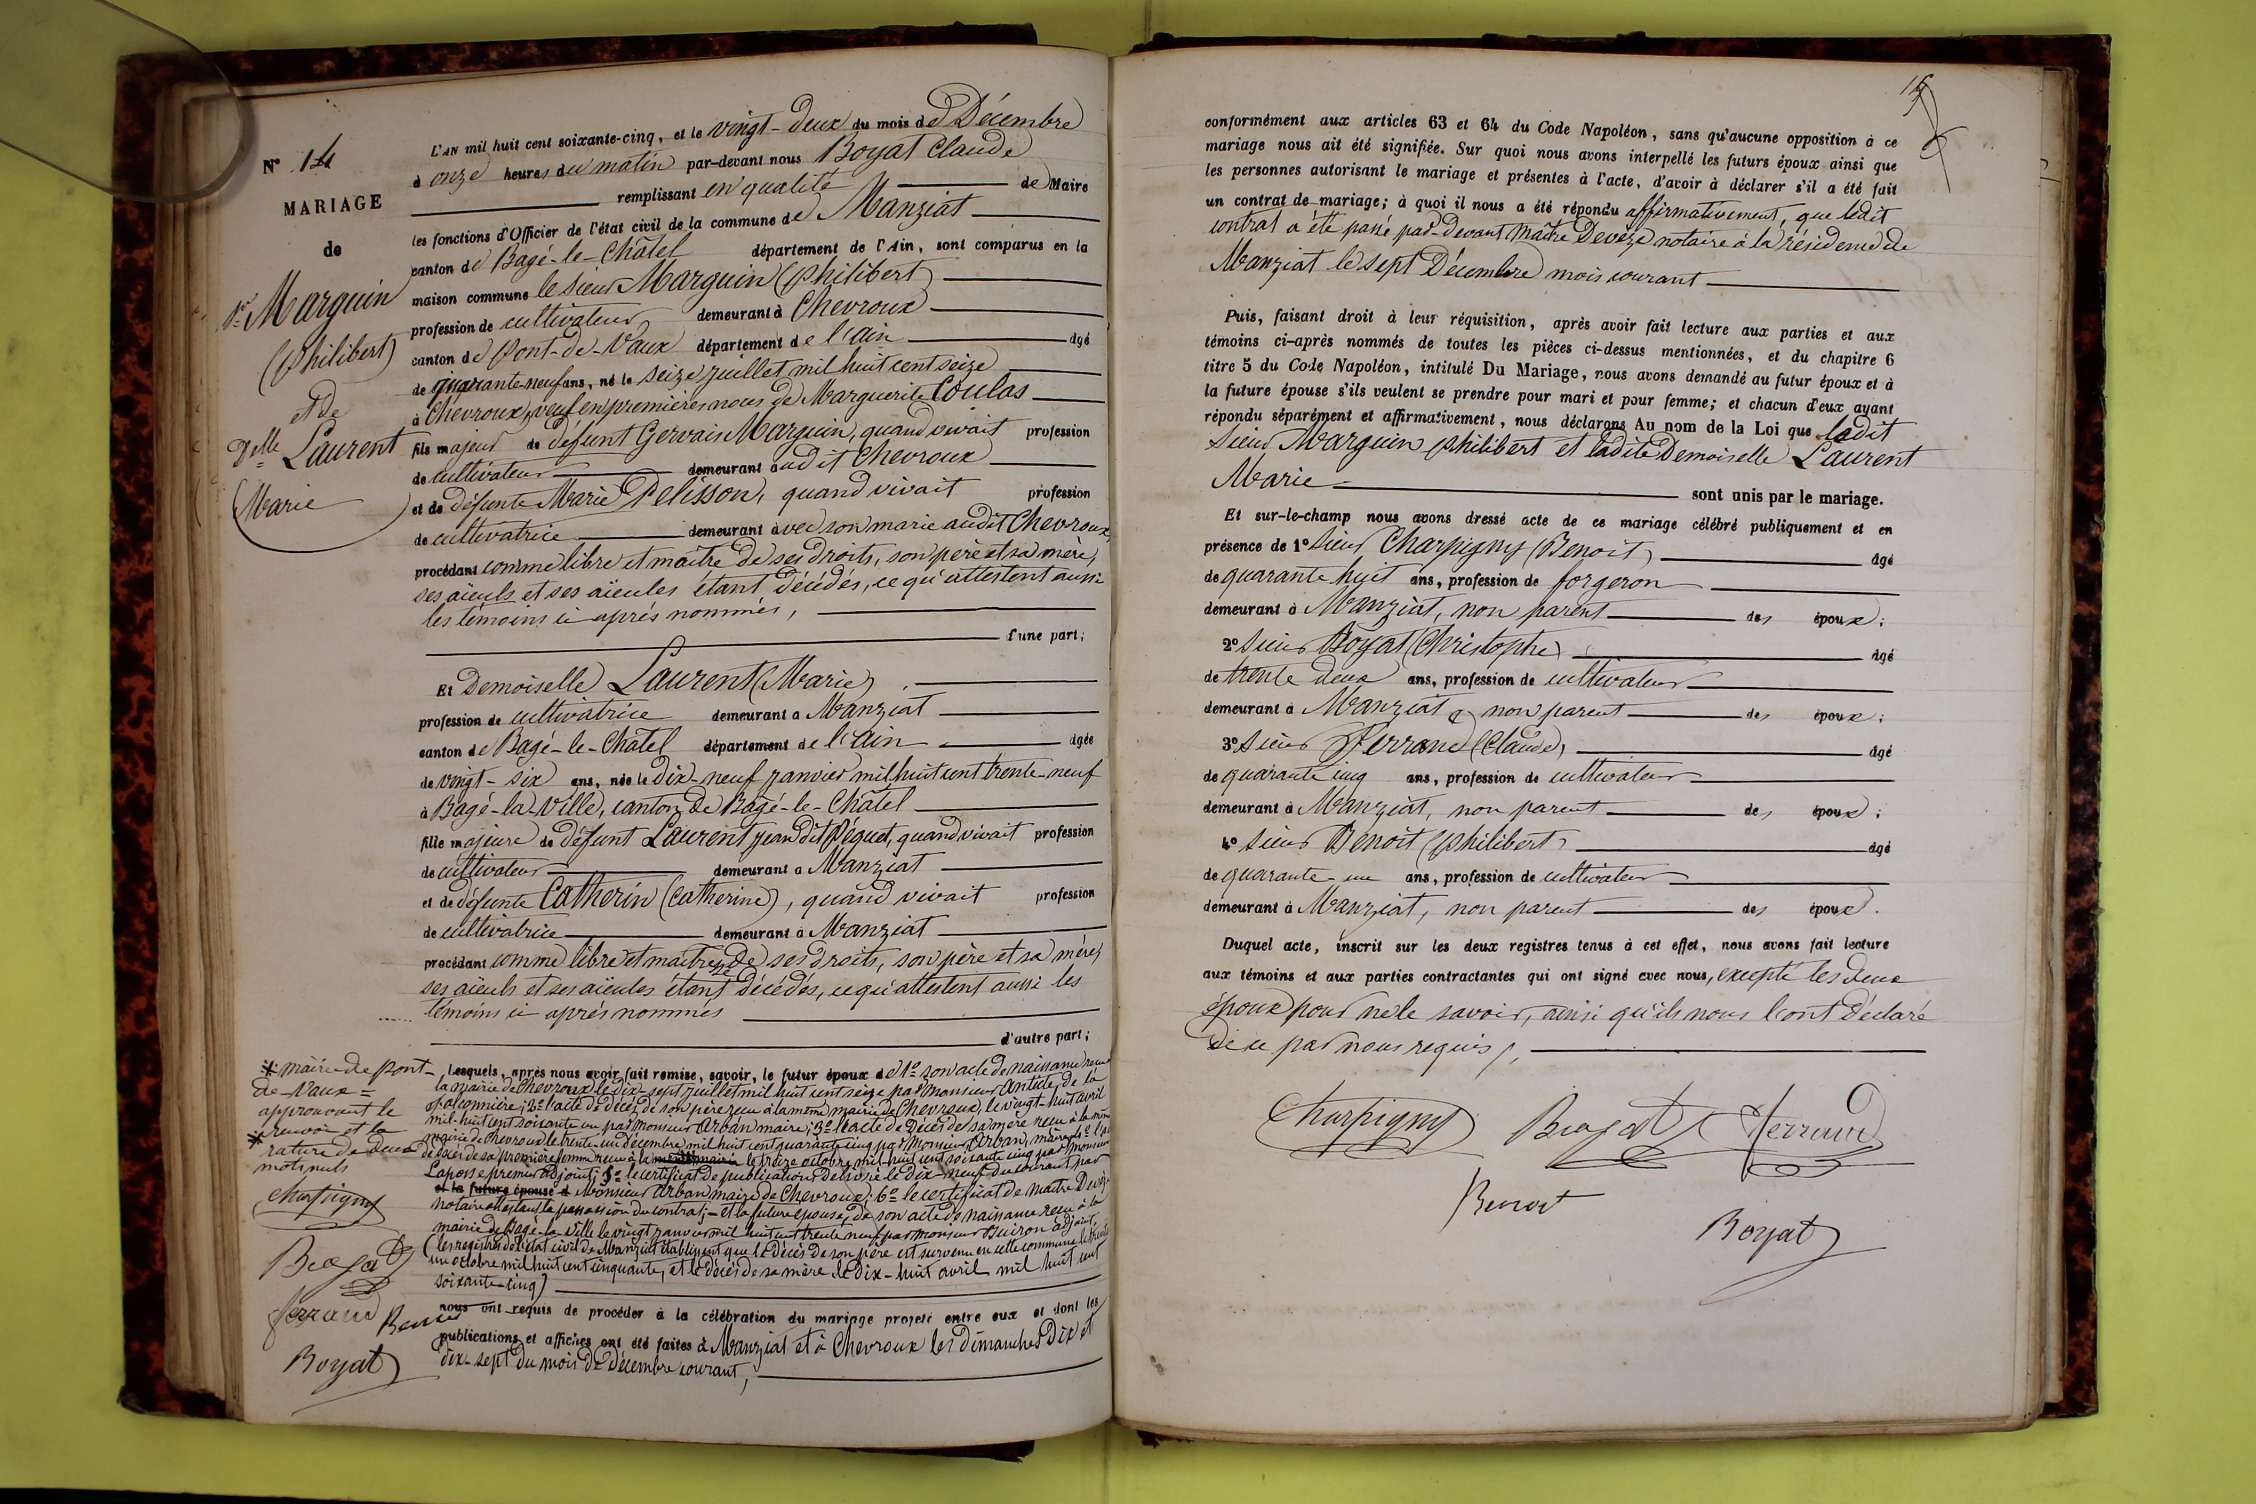 N° 14
MARIAGE
de
Sr Marguin
(Philibert)
et de
Delle Laurent
(Marie)
L'AN mil huit cent soixante-cinq, et le vingt-deux du mois de Décembre
à onze heures du matin par-devant nous Boyat Claude
remplissant en qualité de Maire
les fonctions d'Officier de l'état civil de la commune de Manziat
canton de Bagé-le-Châtel département de l'Ain, sont comparus en la
maison commune le sieur Marguin (Philibert)
profession de cultivateur demeurant à Chevroux
canton de Pont-de-Vaux département de l'Ain âgé
de quarante-neuf ans, né le seize juillet mil huit cent seize
à Chevroux, veuf en premières noces de Marguerite Coulas
fils majeur de défunt Gervais Marguin, quand vivait profession
de cultivateur demeurant audit Chevroux
et de défunte Marie Pelisson, quand vivait profession
de cultivatrice demeurant avec son marie audit Chevroux,
procédant comme libre et maître de ses droits, son père et sa mère,
ses aïeuls et ses aïeules étant décédés, ce qu'attestent aussi
les témoins ci après nommés,
d'une part;
Et Demoiselle Laurent (Marie)
profession de cultivatrice demeurant à Manziat
canton de Bagé-le-Châtel département de l'Ain âgée
de vingt-six ans, née le dix-neuf janvier mil huit cent trente-neuf
à Bagé-la-Ville, canton de Bagé-le-Châtel
fille majeure de défunt Laurent Jean dit Péguet, quand vivait profession
de cultivateur demeurant à Manziat
et de défunte Catherin (Catherine), quand vivait profession
de cultivatrice demeurant à Manziat
procédant comme libre et maitresse de ses droits, son père et sa mère,
ses aïeuls et ses aïeules étant décédés, ce qu'attestent aussi les
témoins ci après nommés
d'autre part;
Lesquels, après nous avoir fait remise, savoir, le futur époux de 1° son acte de naissance reçu à
la mairie de Chevroux le dix-sept juillet mil huit cent seize par Monsieur Anticle de la
Falconnière; 2° l'acte de décès de son père reçu à la même mairie de Chevroux, le vingt-huit avril
mil-huit cent soixante un par Monsieur Arban maire; 3° l'acte de décès de sa mère reçu à la même
mairie de Chevroux le trente-un décembre mil huit cent quarante cinq par Monsieur Arban, maire, 4° l'acte
de décès de sa première femme reçu à la même mairie le treize octobre mil-huit cent soixante cinq par Monsieur
Laposse premier adjoint; 5° le certificat de publications délivré le dix-neuf du courant par
et la future épouse d Monsieur Arban maire de Chevroux; 6° le certificat de maître Devèze
notaire attestant la passation du contrat; - et la future épouse, de son acte de naissance reçu à la
mairie de Bagé-la-Ville le vingt janvier mil huit cent trente neuf par Monsieur Buiron adjoint,
(les registres de l'état civil de Manziat établissent que le décès de son père est survenu en cette commune le trente
un octobre mil huit cent cinquante, et le décès de sa mère le dix-huit avril mil huit cent
soixante-cinq)
nous ont requis de procéder à la célébration du mariage projeté entre eux et dont les
publications et affiches ont été faites à Manziat et à Chevroux les dimanches dix et
dix-sept du mois de décembre courant,
* mairie de Pont-
de-Vaux =
approuvant le
* renvoi et la
rature de deux
mots nuls
Charpigny
Boyat
Ferrand
Benoit
Boyat
conformément aux articles 63 et 64 du Code Napoléon, sans qu'aucune opposition à ce
mariage nous ait été signifiée. Sur quoi nous avons interpellé les futurs époux ainsi que
les personnes autorisant le mariage et présentes à l'acte, d'avoir à déclarer s'il a été fait
un contrat de mariage; à quoi il nous a été répondu affirmativement, que ledit
contrat a été passé par-devant Maître Devèze notaire à la résidence de
Manziat le sept Décembre mois courant
Puis, faisant droit à leur réquisition, après avoir fait lecture aux parties et aux
témoins ci-après nommés de toutes les pièces ci-dessus mentionnées, et du chapitre 6
titre 5 du Code Napoléon, intitulé Du Mariage, nous avons demandé au futur époux et à
la future épouse s'ils veulent se prendre pour mari et pour femme; et chacun d'eux ayant
répondu séparément et affirmativement, nous déclarons Au nom de la Loi que ledit
sieur Marguin Philibert et ladite Demoiselle Laurent
Marie sont unis par le mariage.
Et sur-le-champ nous avons dressé acte de ce mariage célébré publiquement et en
présence de 1° sieur Charpigny (Benoit) âgé
de quarante huit ans, profession de forgeron
demeurant à Manziat, non parent des époux;
2° sieur Boyat (Christophe) âgé
de trente deux ans, profession de cultivateur
demeurant à Manziat, non parent des époux;
3° sieur Ferrand (Claude) âgé
de quarante cinq ans, profession de cultivateur
demeurant à Manziat, non parent des époux;
4° sieur Benoit (Philibert) âgé
de quarante-un ans, profession de cultivateur
demeurant à Manziat, non parent des époux.
Duquel acte, inscrit sur les deux registres tenus à cet effet, nous avons fait lecture
aux témoins et aux parties contractantes qui ont signé avec nous, excepté les deux
époux pour ne le savoir, ainsi qu'ils nous l'ont déclaré
de ce par nous requis,
Charpigny Boyat Ferrand
Benoit
Boyat